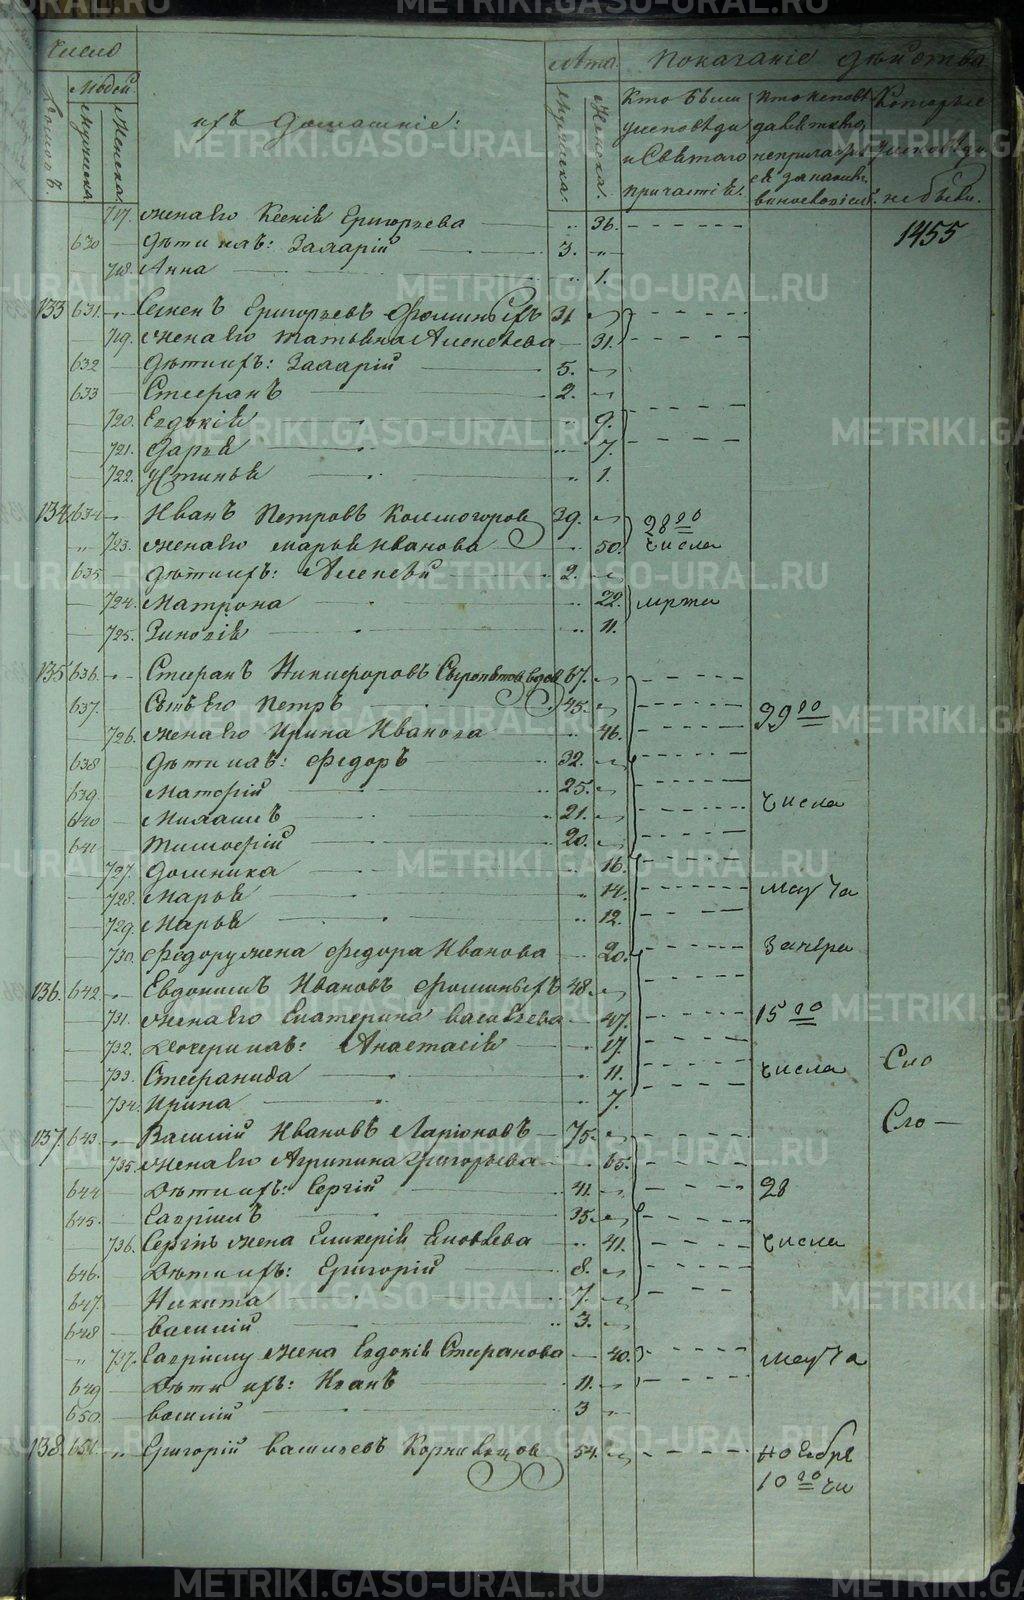 Число
Людей
Домовъ.
Мужеска
Женска.
ихъ домашніе:
Лѣта.
Мужеска.
Женска.
Показаніе дѣйства
Кто были у исповѣди и Святаго причастія.
Которые у исповѣди не были.
1455
717. жена его Ксенія Григорьева 36.
630 дѣти ихъ: Захарій 3.
718. Анна 1.
133 631. Семенъ Григорьевъ Фоминыхъ 31
719. жена его Татьяна Алексѣева 31.
632 дѣти ихъ: Захарій 5.
633 Стефанъ 2.
720. Евдокія 9.
721. Дарья 7.
722. Устинья 1.
134 634 Иванъ Петровъ Колмогоровъ 39. 28го
723. жена его Марья Иванова 50. числа
635 дѣти ихъ: Алексѣй 2.
724. Матрона 22. марта
725. Зиновія 11.
135 636. Стефанъ Никифоровъ вдов 67.
637. Сынъ его Петръ 45. 29го
726. жена его Ирина Иванова 46.
638 дѣти ихъ: Федоръ 32.
639. 25. числа
640 21.
641 Тимофей 20.
727. Домника 16.
728. Марья 14. марта
729. Марья 12.
730. Федору жена Федора Иванова 20.
136. 642. Евдокимъ Ивановъ Фоминыхъ 48.
731. жена его Екатерина Васильева 47. 15го
732. Дочери ихъ: Анастасія 17.
733. Стефанида 11. числа
734. Ирина 7.
137. 643. Василій Ивановъ Ларіоновъ 75.
735. жена его Агрипина Григорьева 65.
644 Дѣти ихъ: Сергій 41. 28
645. Гавріилъ 35.
736. Сергію жена Гликерія Яковлева 41. числа
646. Дѣти ихъ: Григорій 8.
647. Никита 7.
648 Василій 3.
737. Гаврiилу жена Евдокія Стефанова 40. марта
649 Дѣти ихъ: Иванъ 11.
650. Василій 3
138. 651. Григорій Васильевъ 54. ноября
10го чи
METRIKI.GASO-URAL.RU